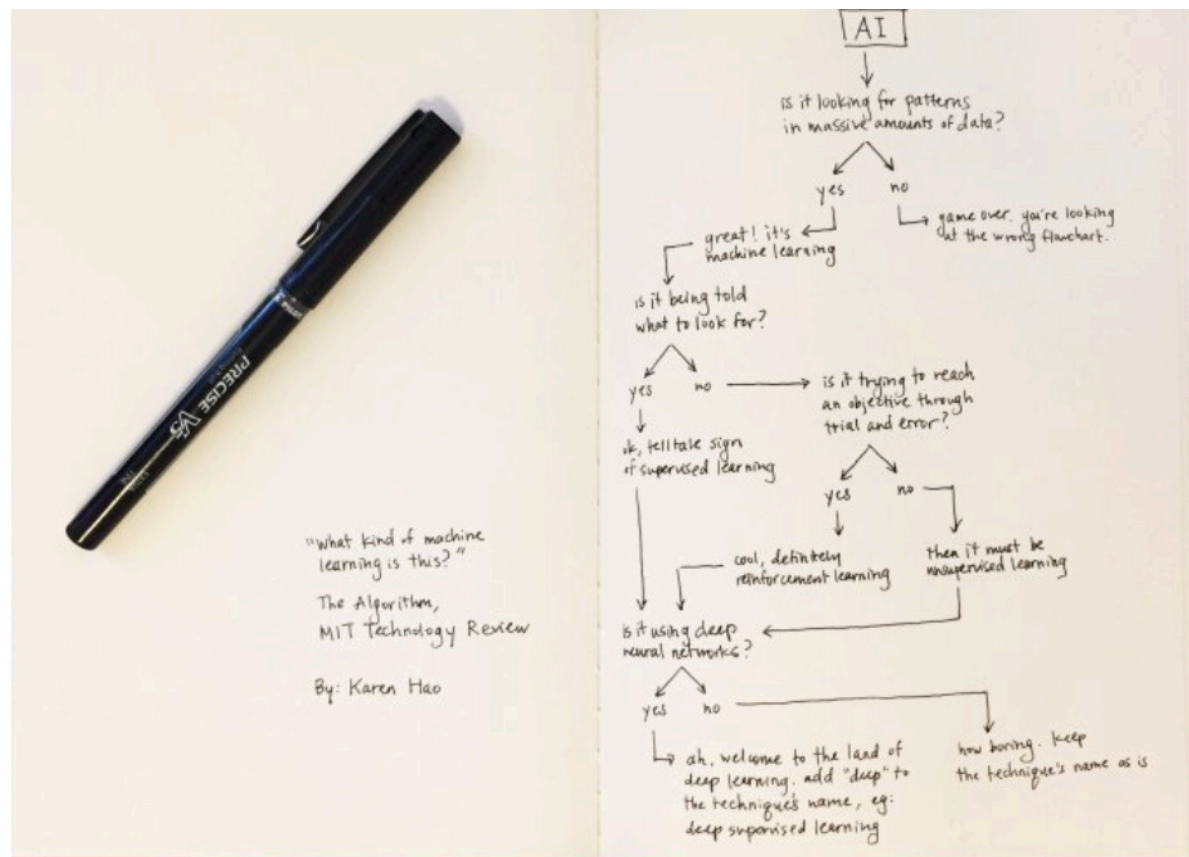 PILOT
PRECISE V5
"what kind of machine
learning is this?"
The Algorithm,
MIT Technology Review
By: Karen Hao
AI
is it looking for patterns
in massive amounts of data?
yes
no
great! it's
machine learning
game over. you're looking
at the wrong flowchart.
is it being told
what to look for?
yes
no
is it trying to reach
an objective through
trial and error?
ok, telltale sign
of supervised learning
yes
no
cool, definitely
reinforcement learning
then it must be
unsupervised learning
is it using deep
neural networks?
yes
no
ah, welcome to the land of
deep learning. add "deep" to
the technique's name, eg:
deep supervised learning
how boring. keep
the technique's name as is